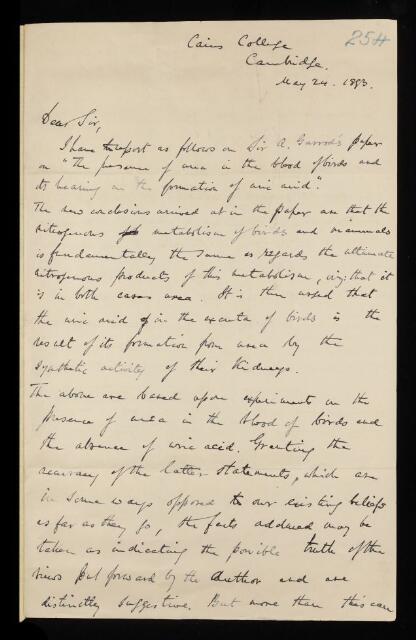 254
Caius College
Cambridge.
May 24. 1893.
Dear Sir,
I have to report as follows on Sir A. Garrod's paper
on "The presence of urea in the blood of birds and
its bearing on the formation of uric acid".
The new conclusions arrived at in the paper are that the
nitrogenous metabolism of birds and mammals
is fundamentally the same as regards the ultimate
nitrogenous products of this metabolism, viz; that it
is in both cases urea. It is then urged that
the uric acid in the excreta of birds is the
result of its formation from urea by the
synthetic activity of their kidneys.
The above are based upon experiments on the
presence of urea in the blood of birds and
the absence of uric acid. Granting the
accuracy of the latter statements, which are
in some ways opposed to our existing beliefs
as far as they go, the facts adduced may be
taken as indicating the possible truth of the
views put forward by the author and are
distinctly suggestive. But more than this can